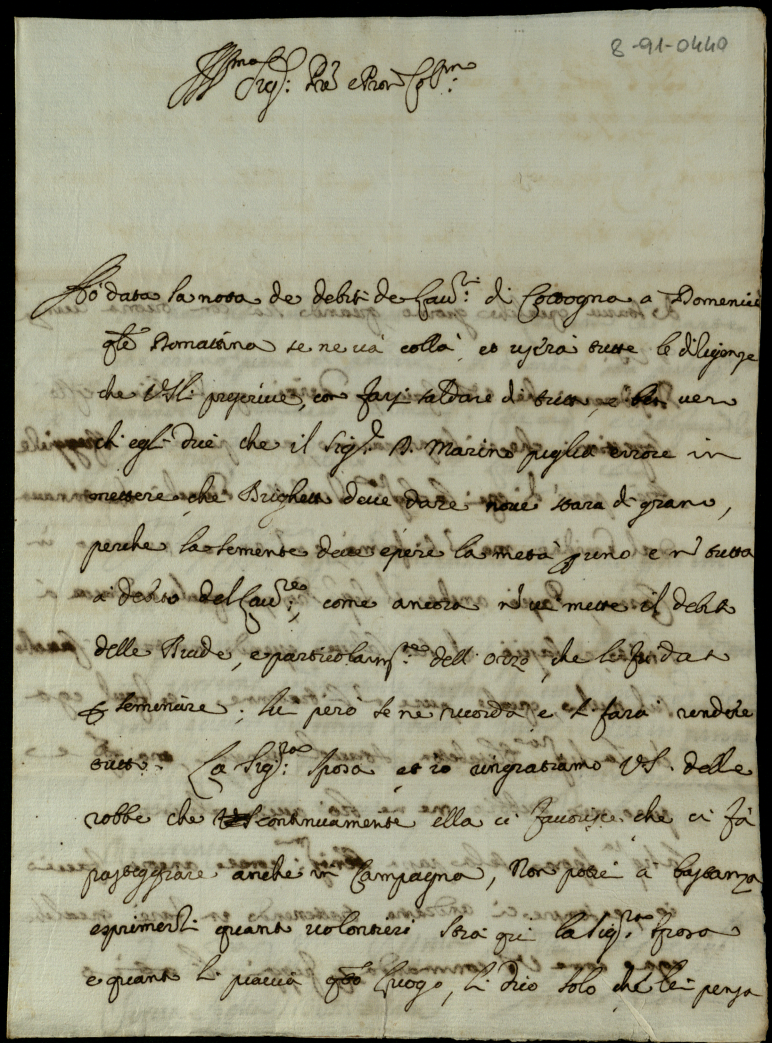 8-91-0440
Ill.mo Sig.r P̃re e Pron Col.mo
Hò data la nota de debiti de Cau.ri di Codogna a Domenico
q̃le Domattina se ne uà collà, et userà tutte le diligenze
che VSI: prescriue, con farsi saldare di tutto, e ben uero
ch egli dice che il Sig.r D. Marino piglia errore in
mettere che Brighetti deue dare noue stara di grano,
perche la semente deue essere la metà per uno e nõ tutta
a debito del Cau.re, come ancora nõ ue mette il debito
delle Biade, e particolarm.te dell'orzo, che le fu dato
per seminare; lui però se ne ricorda e si farà rendere
tutto. La Sig.ra Sposa et io ringratiamo VS. delle
robbe che continuamente ella ci fauorisce che ci fà
passeggiare anche in Campagna, Non potrei à bastanza
esprimerli quanto uolontieri stia qui la Sig.ra Sposa
e quanto li piaccia q̃sto Luogo, li dico solo che lei pensa